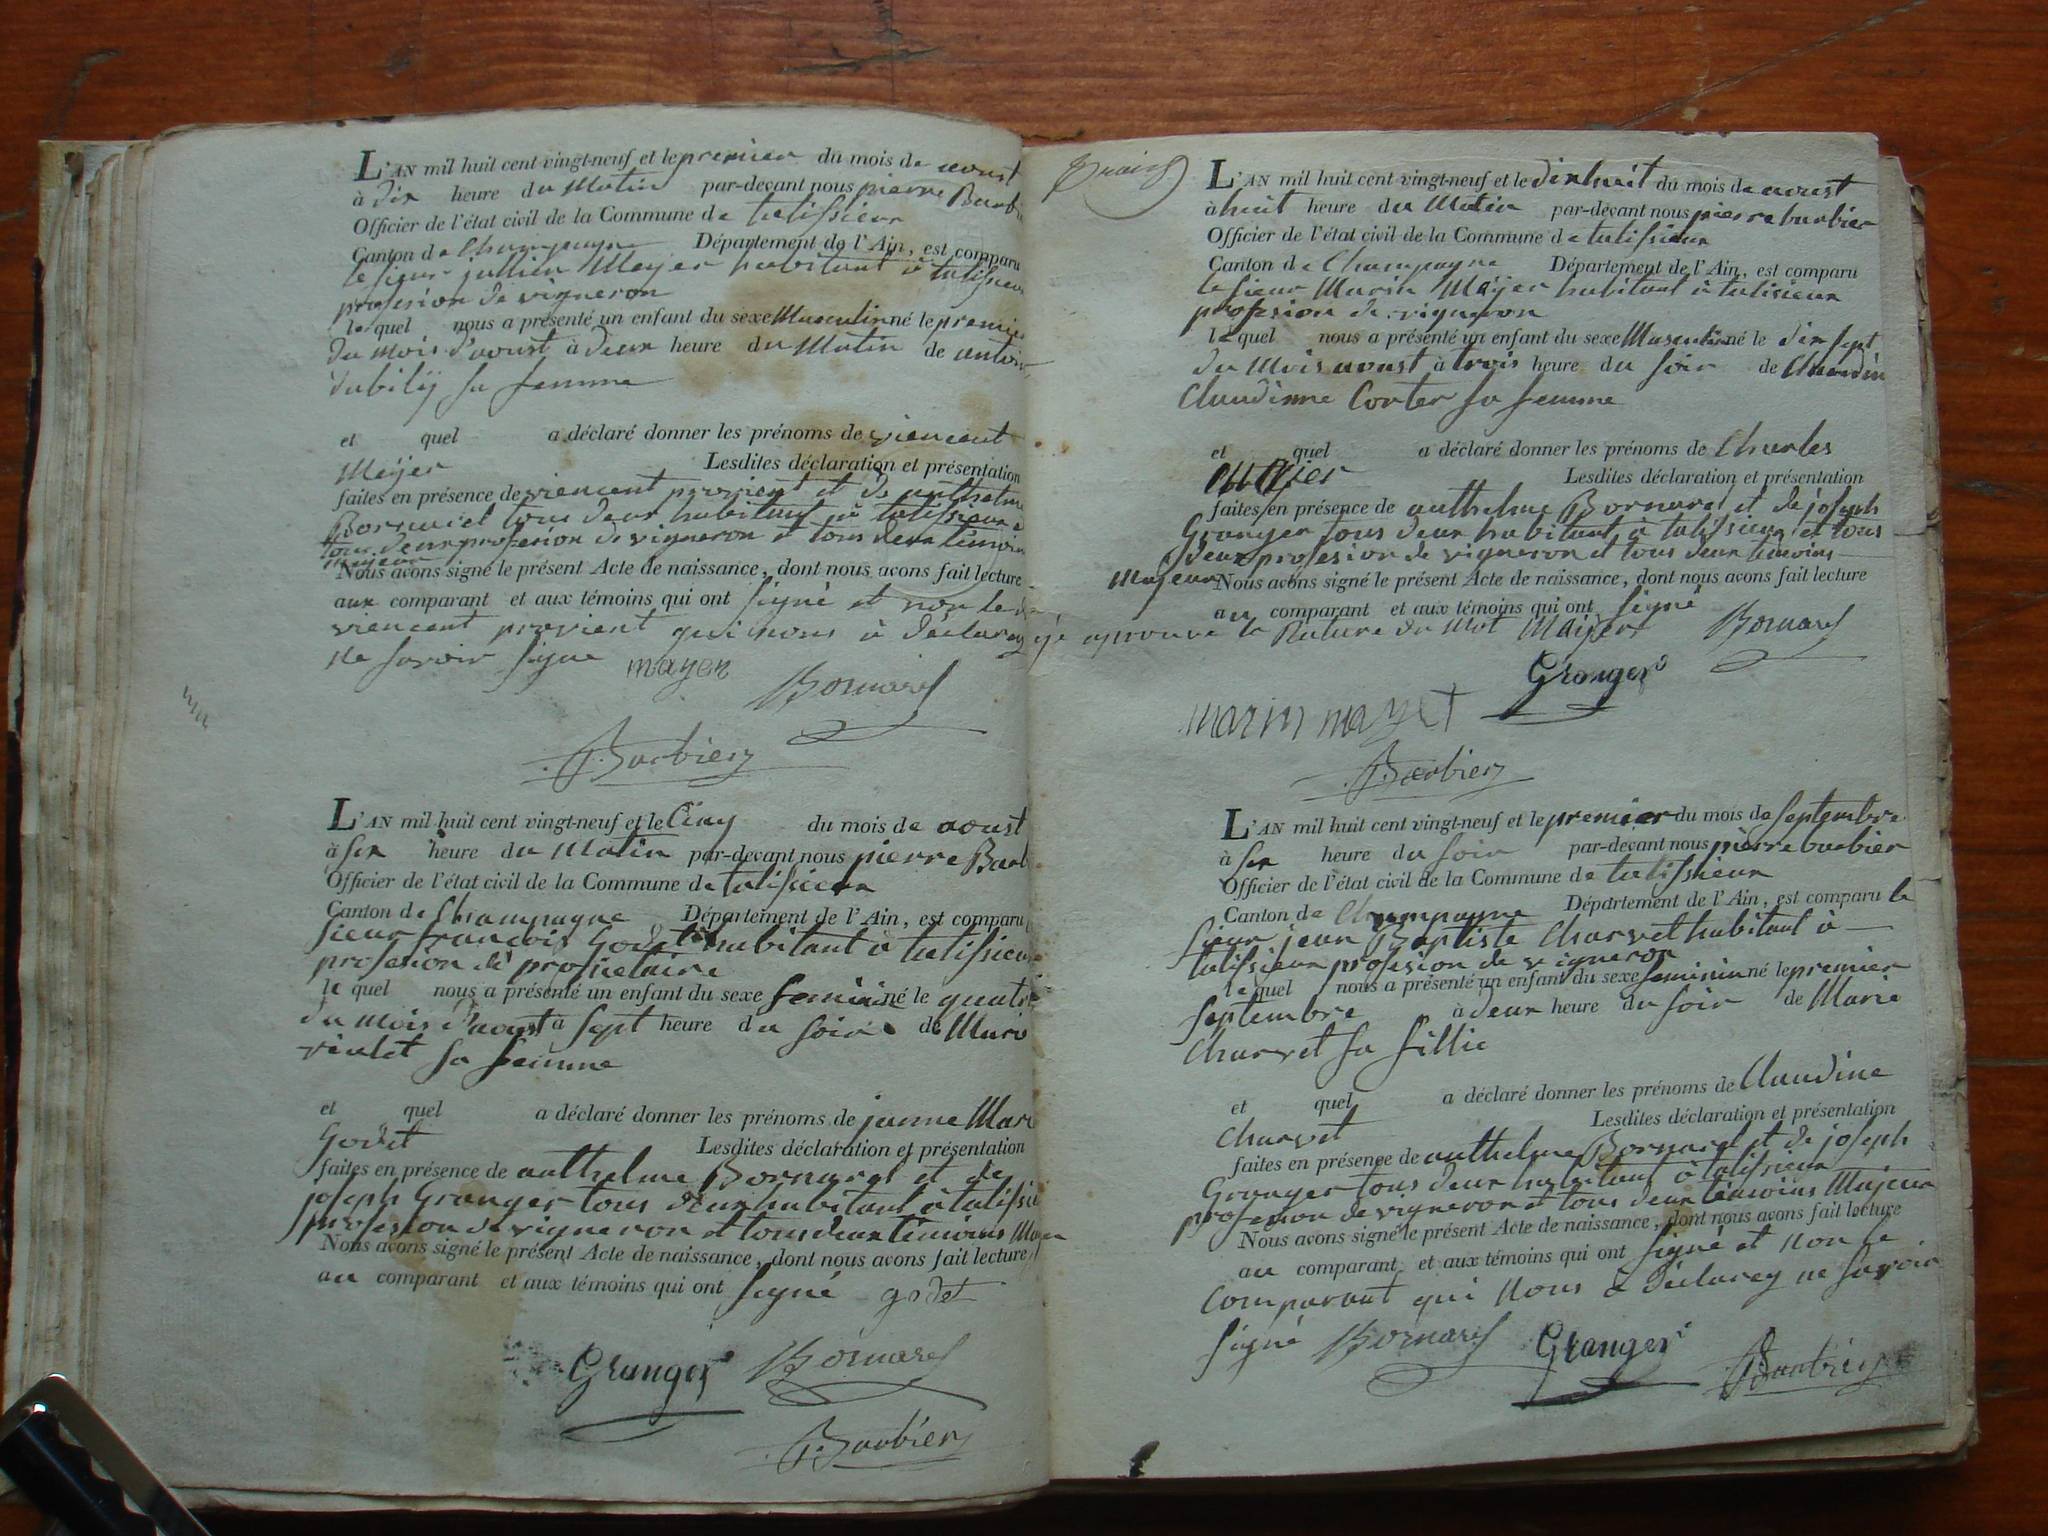 L'AN mil huit cent vingt-neuf et le premier du mois de aoust
à dix heure du Matin par-devant nous pierre Barbi
Officier de l'état civil de la Commune de talissieux
Canton de Champagne Département de l'Ain, est comparu
le sieur jullien Meyer habitant à talissieux
profesion de vigneron
le quel nous a présenté un enfant du sexe Masculin né le premier
du mois d'aoust à deux heure du Matin de antoi
dubilly sa femme
et quel a déclaré donner les prénoms de viencent
Meyer Lesdites déclaration et présentation
faites en présence de viencent provient et de anthelme
Bornard tous deux habitant à talissieux
tous deux profesion de vigneron et tous deux témoins
majeur
Nous avons signé le présent Acte de naissance, dont nous avons fait lecture
aux comparant et aux témoins qui ont signé et non le
viencent provient qui nous à déclarey
ne savoir signe mayer
Bornard
Barbier
L'AN mil huit cent vingt-neuf et le Cinq du mois de aoust
à six heure du Matin par-devant nous pierre Barb
Officier de l'état civil de la Commune de talissieux
Canton de Champagne Département de l'Ain, est comparu
sieur françois Godet habitant à talissieu
profesion de proprietaire
le quel nous a présenté un enfant du sexe feminin né le quatr
du mois d'aoust à sept heure du soir de Marie
violet sa femme
et quel a déclaré donner les prénoms de janne Mari
Godet Lesdites déclaration et présentation
faites en présence de anthelme Bornard et de
joseph Granger tous deux habitant à talissi
profession de vigneron et tous deux témoins Majeu
Nous avons signé le présent Acte de naissance, dont nous avons fait lecture
au comparant et aux témoins qui ont signé godet
Granger Bornard
Barbier
L'AN mil huit cent vingt-neuf et le dixhuit du mois de aoust
à huit heure du Matin par-devant nous pierre barbier
Officier de l'état civil de la Commune de talissieux
Canton de Champagne Département de l'Ain, est comparu
le sieur Marin Mayer habitant à talisieux
profesion de vigneron
le quel nous a présenté un enfant du sexe Masculin né le dix sept
du Mois aoust à trois heure du soir de Claudin
Claudinne Corter sa femme
et quel a déclaré donner les prénoms de Charles
Majer Lesdites déclaration et présentation
faites en présence de anthelme Bornard et de joseph
Granger tous deux habitant à talissieux et tous
deux profesion de vigneron et tous deux témoins
Majeur Nous avons signé le présent Acte de naissance, dont nous avons fait lecture
au comparant et aux témoins qui ont signé
je aprouve la Rature du Mot Maijers Bornard
Granger
marin mayet
Barbier
L'AN mil huit cent vingt-neuf et le premier du mois de Septembre
à six heure du soir par-devant nous pierre barbier
Officier de l'état civil de la Commune de talissieux
Canton de Champagne Département de l'Ain, est comparu le
sieur jean Baptiste Charvet habitant à
talissieux profesion de vigneron
le quel nous a présenté un enfant du sexe feminin né le premier
Septembre à deux heure du soir de Marie
Charvet sa fillie
et quel a déclaré donner les prénoms de Claudine
Charvet Lesdites déclaration et présentation
faites en présence de anthelme Bornard et de joseph
Granger tous deux habitant à talissieux
profession de vigneron et tous deux témoins Majeur
Nous avons signé le présent Acte de naissance, dont nous avons fait lecture
au comparant et aux témoins qui ont signé et non le
Comparant qui Nous à déclarey ne savoir
signé Bornard Granger Barbier